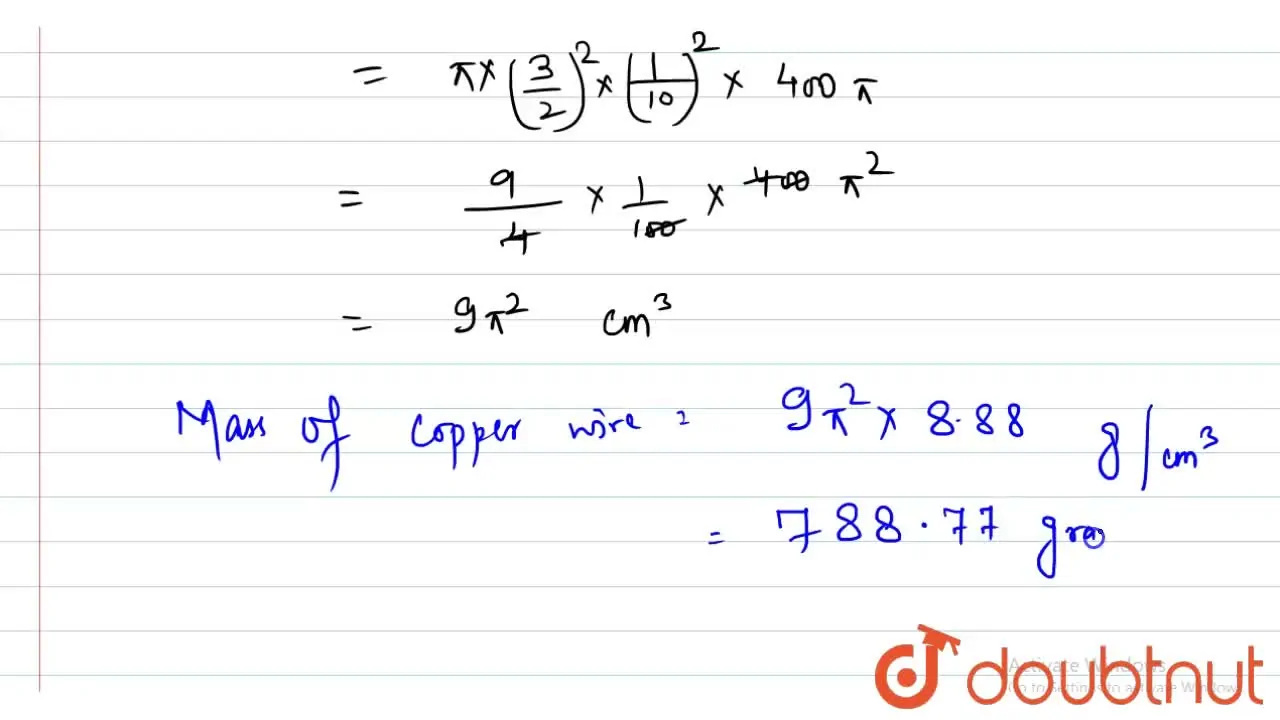 = π× (3/2)² × (1/10)² × 400 π
= 9/4 × 1/100 × 400 π²
= 9π² cm³
Mass of copper wire = 9π² × 8.88 g/cm³
= 788.77 gra
Activate Windows
Go to Settings to activate Windows.
doubtnut